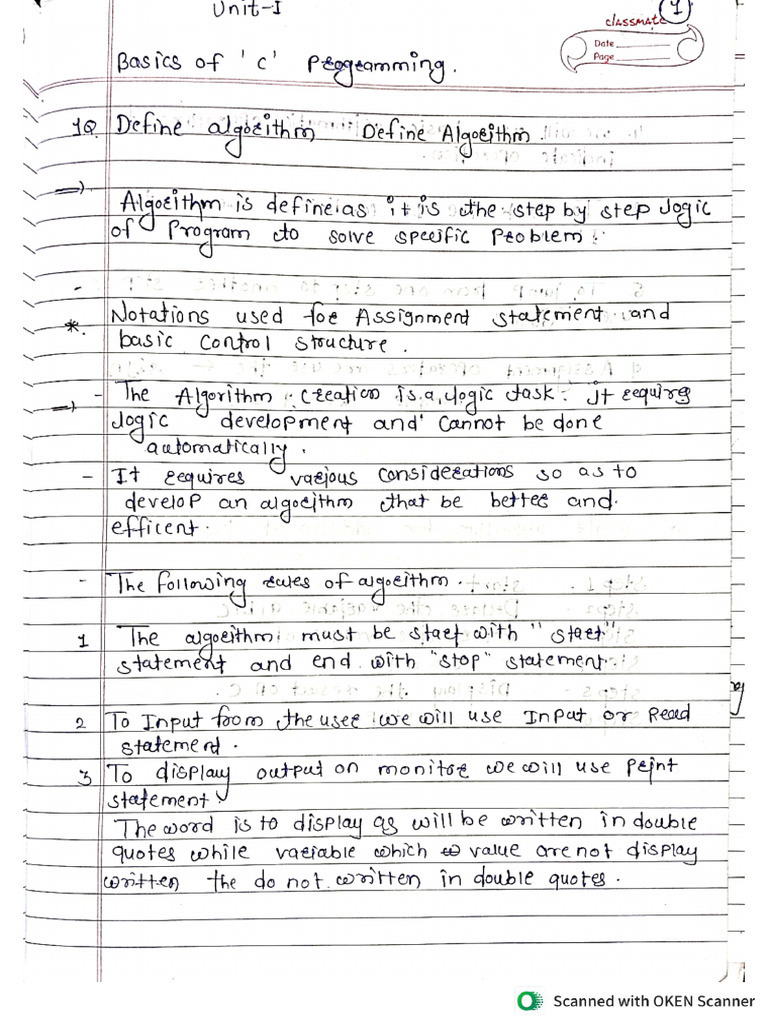 Unit-I
1
classmate
Date
Page
Basics of 'C' Programming.
1Q. Define algorithm Define Algorithm.
Algorithm is define as it is the step by step logic
of Program to solve specific Problem.
*. Notations used for Assignment statement and
basic control structure.
- The Algorithm creation is a logic task. it requires
logic development and cannot be done
automatically.
- It requires various considerations so as to
develop an algorithm that be better and
efficent.
- The following rules of algorithm.
1 The algorithm must be start with "start"
statement and end with "stop" statement.
2 To Input from the user we will use Input or Read
statement.
3 To display output on monitor we will use print
statement
The word is to display as will be written in double
quotes while variable which to value are not display
written the do not written in double quotes.
Scanned with OKEN Scanner